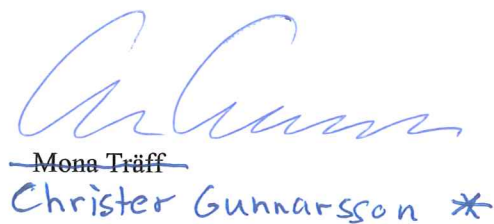 Mona Träff
Christer Gunnarsson *